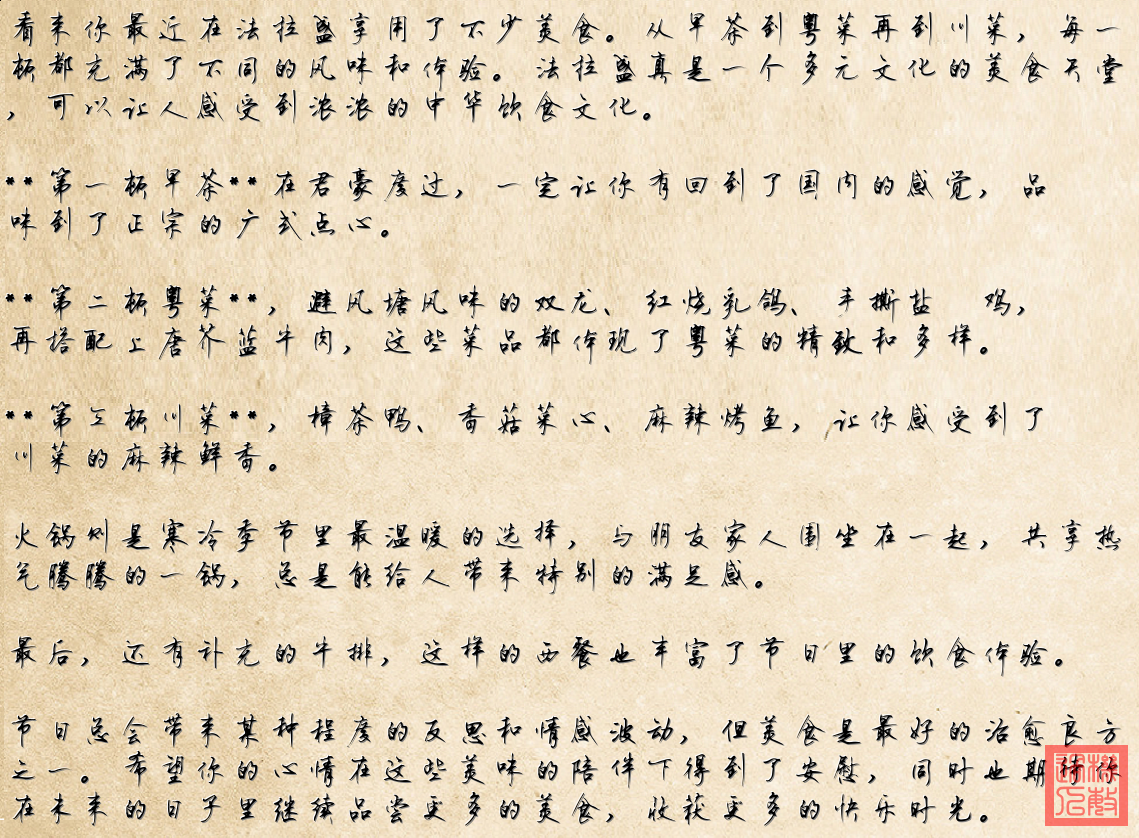 看来你最近在法拉盛享用了不少美食。从早茶到粤菜再到川菜，每一
标都充满了不同的风味和体验。法拉盛真是一个多元文化的美食天堂
，可以让人感受到浓浓的中华饮食文化。
**第一标早茶**在君豪度过，一定让你有回到了国内的感觉，品
味到了正宗的广式点心。
**第二标粤菜**，避风塘风味的双龙、红烧乳鸽、手撕盐 鸡，
再搭配上唐芥蓝牛肉，这些菜品都体现了粤菜的精致和多样。
**第三标川菜**，樟茶鸭、香菇菜心、麻辣烤鱼，让你感受到了
川菜的麻辣鲜香。
火锅则是寒冷季节里最温暖的选择，与朋友家人围坐在一起，共享热
气腾腾的一锅，总是能给人带来特别的满足感。
最后，还有补充的牛排，这样的西餐也丰富了节日里的饮食体验。
节日总会带来某种程度的反思和情感波动，但美食是最好的治愈良方
之一。希望你的心情在这些美味的陪伴下得到了安慰，同时也期待你
在未来的日子里继续品尝更多的美食，收获更多的快乐时光。